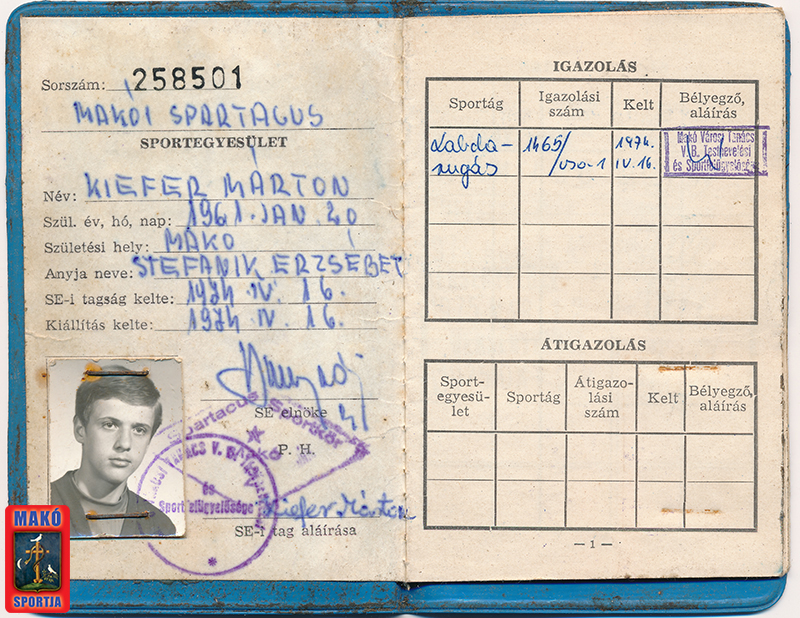 Sorszám: 258501
MAKÓI SPARTACUS
SPORTEGYESÜLET
Név: KIEFER MÁRTON
Szül. év, hó, nap: 1961. JAN. 20
Születési hely: MAKÓ
Anyja neve: STEFANIK ERZSÉBET
SE-i tagság kelte: 1974 IV. 16.
Kiállítás kelte: 1974 IV. 16.
SE elnöke
Spartacus Sportkör
P. H.
és
Sportfelügyelősége
Kiefer Márton
SE-i tag aláírása
MAKÓ
SPORTJA
IGAZOLÁS
Sportág Igazolási szám Kelt Bélyegző, aláírás
Labda- 1465/ 1974.
rugás IV. 16.
Makó Városi Tanács
V. B. Testnevelési
és Sportfelügyelősége
ÁTIGAZOLÁS
Sport-egyesü-let Sportág Átigazo-lási szám Kelt Bélyegző, aláírás
— 1 —